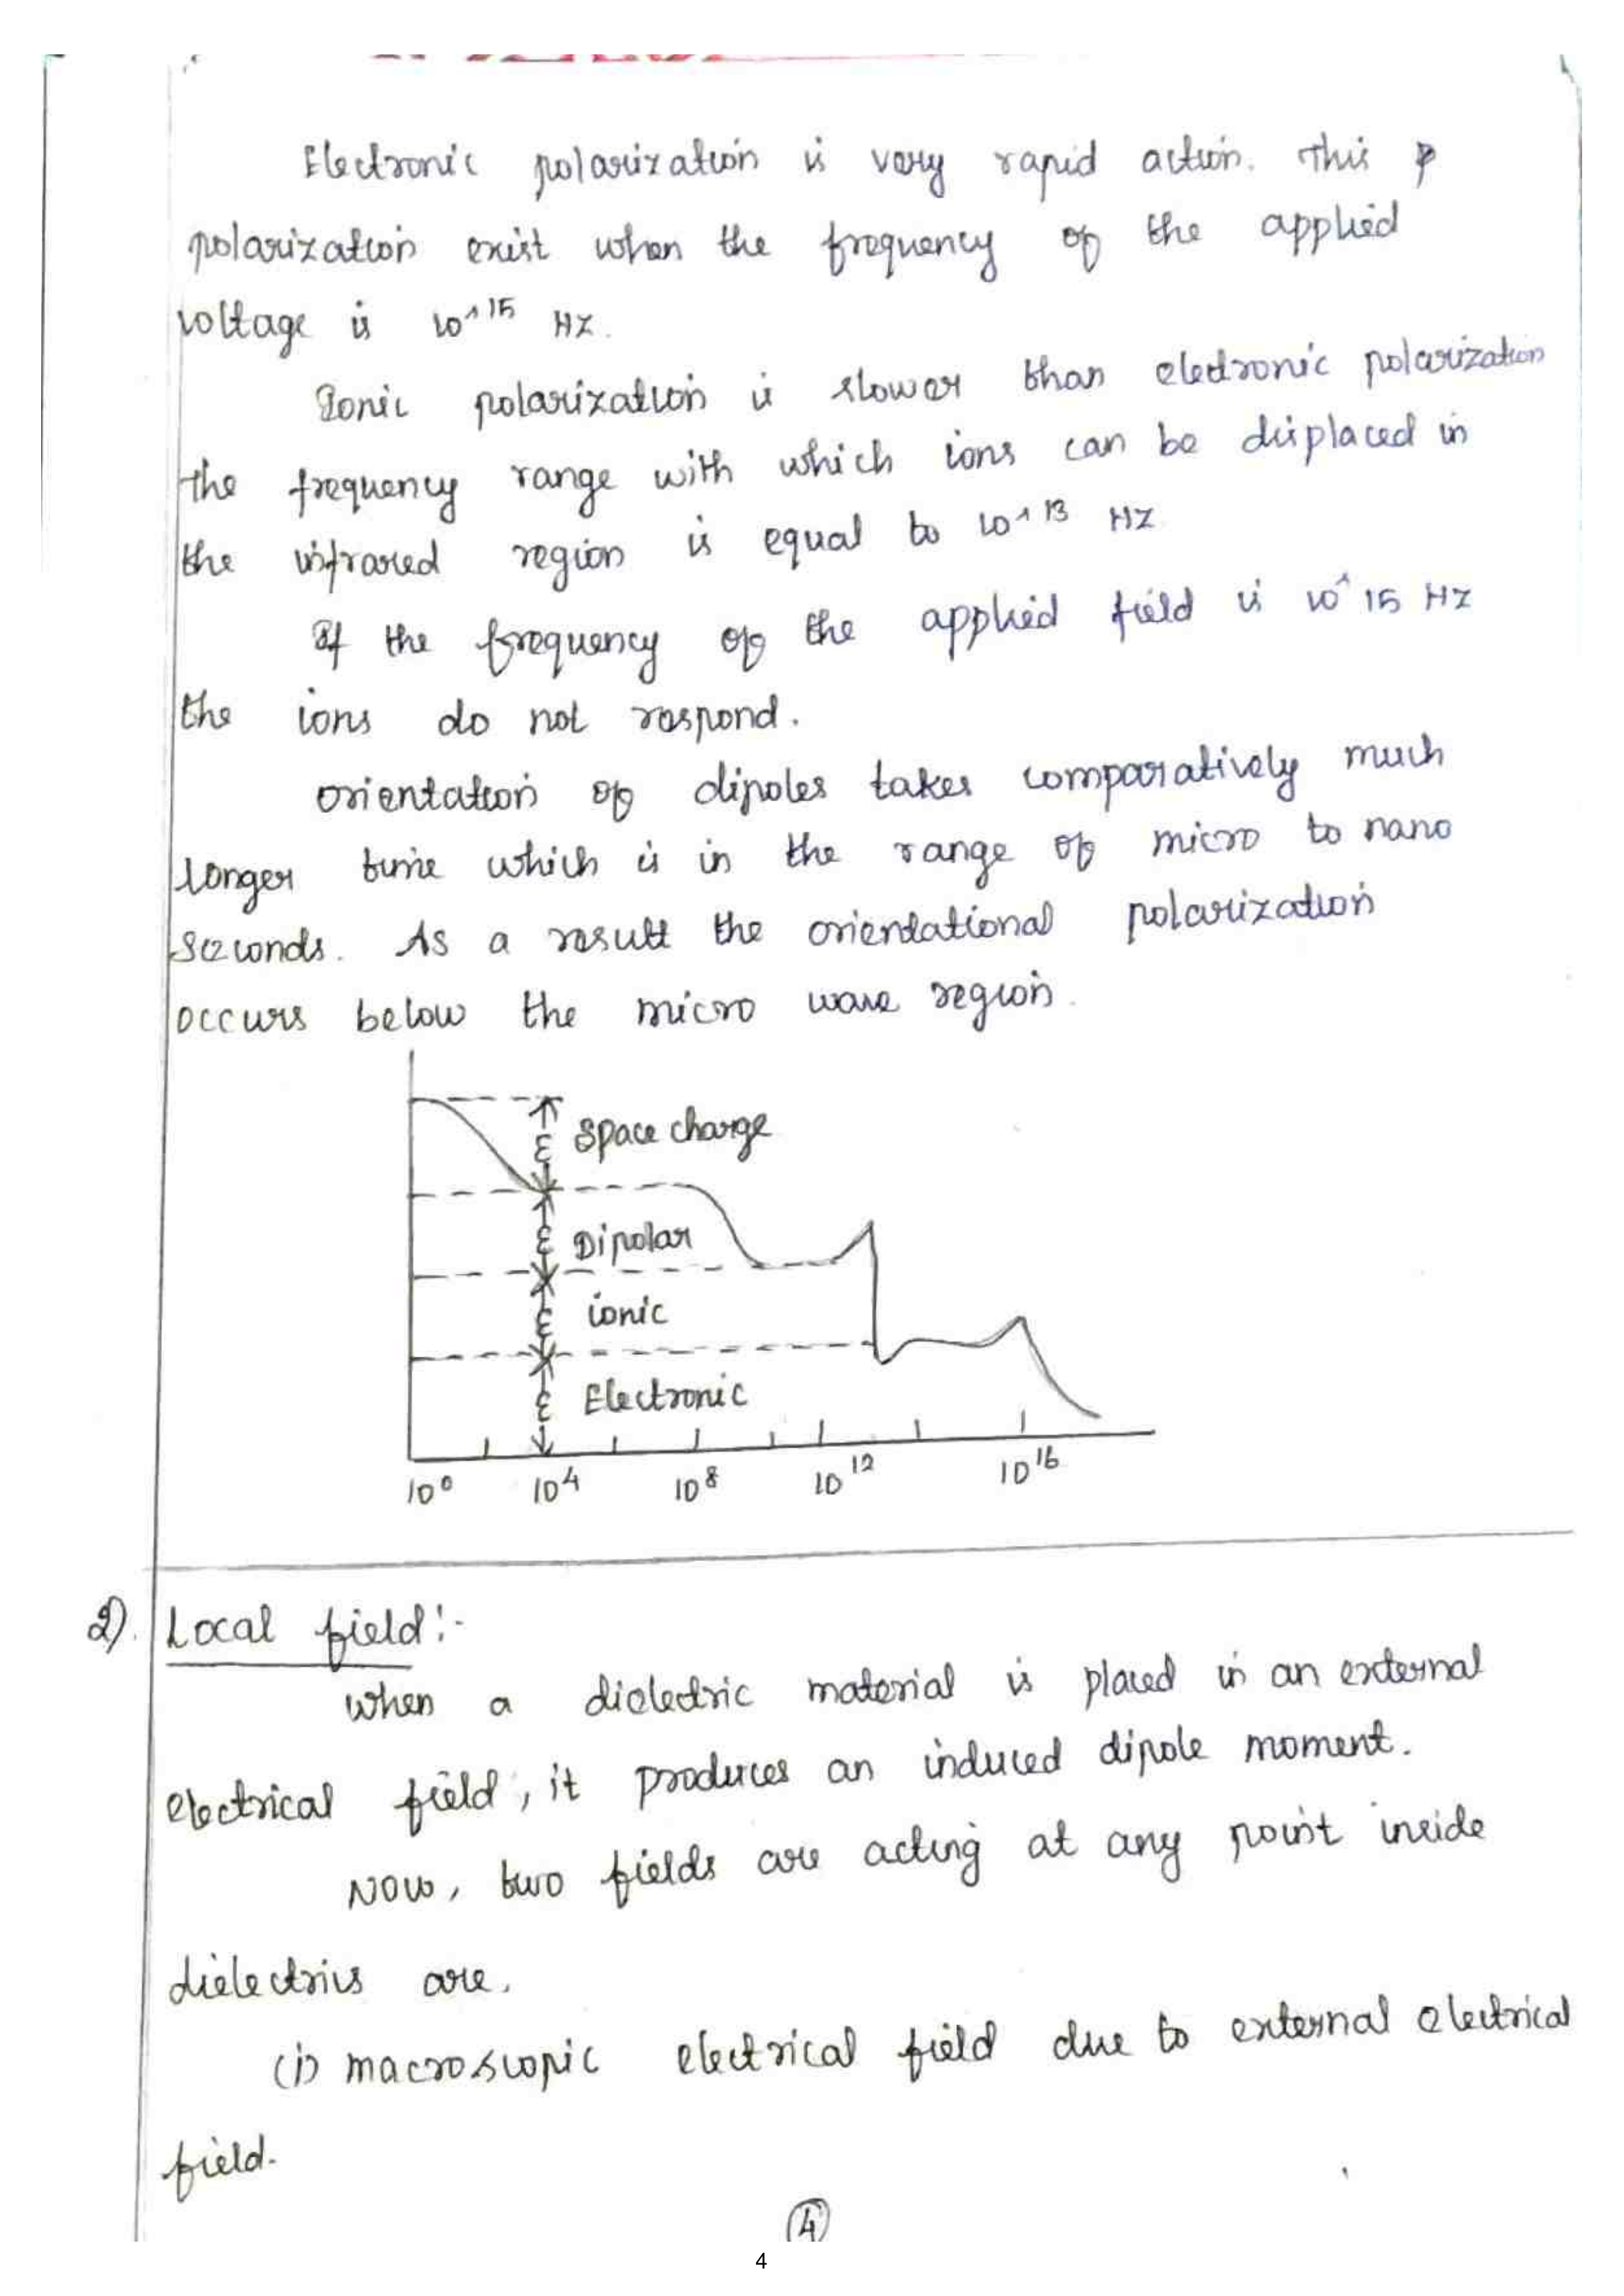 Electronic polarization is very rapid action. This p
polarization exist when the frequency of the applied
voltage is 10^15 Hz.
Ionic polarization is slower than electronic polarization
the frequency range with which ions can be displaced in
the infrared region is equal to 10^13 Hz
If the frequency of the applied field is 10^15 Hz
the ions do not respond.
orientation of dipoles takes comparatively much
longer time which is in the range of micro to nano
seconds. As a result the orientational polarization
occurs below the micro wave region.
ε Space charge
ε Dipolar
ε ionic
ε Electronic
10⁰ 10⁴ 10⁸ 10¹² 10¹⁶
2). Local field:-
When a dielectric material is placed in an external
electrical field, it produces an induced dipole moment.
Now, two fields are acting at any point inside
dielectrics are,
(i) macroscopic electrical field due to external electrical
field.
4
4